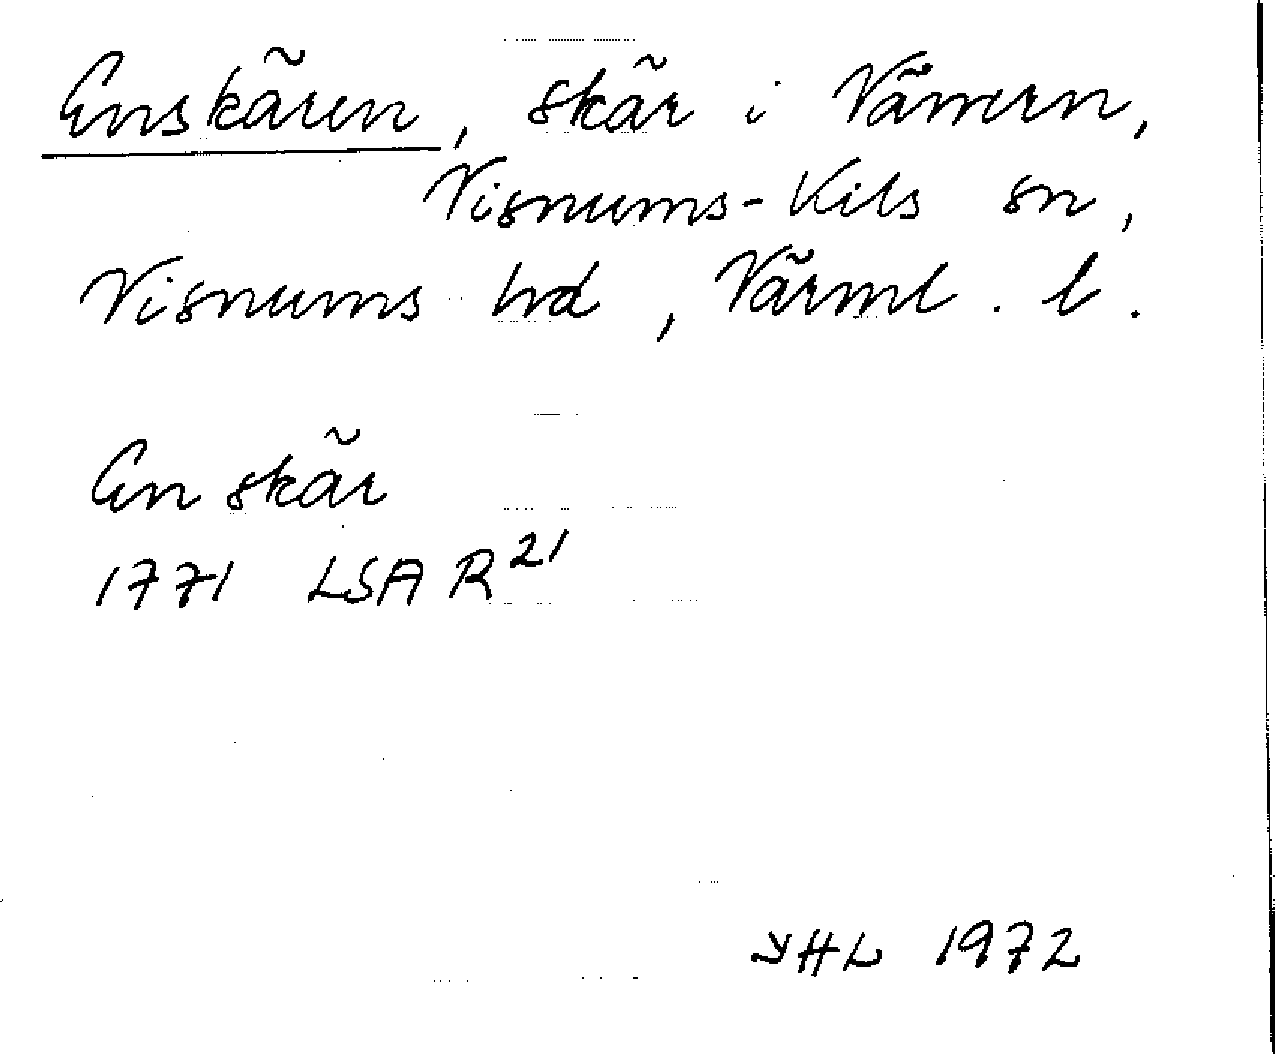 Enskären, skär i Vänern,
Visnums-Kils sn,
Visnums hd, Värml. l.
En skär
1771 LSA R 21
YHL 1972